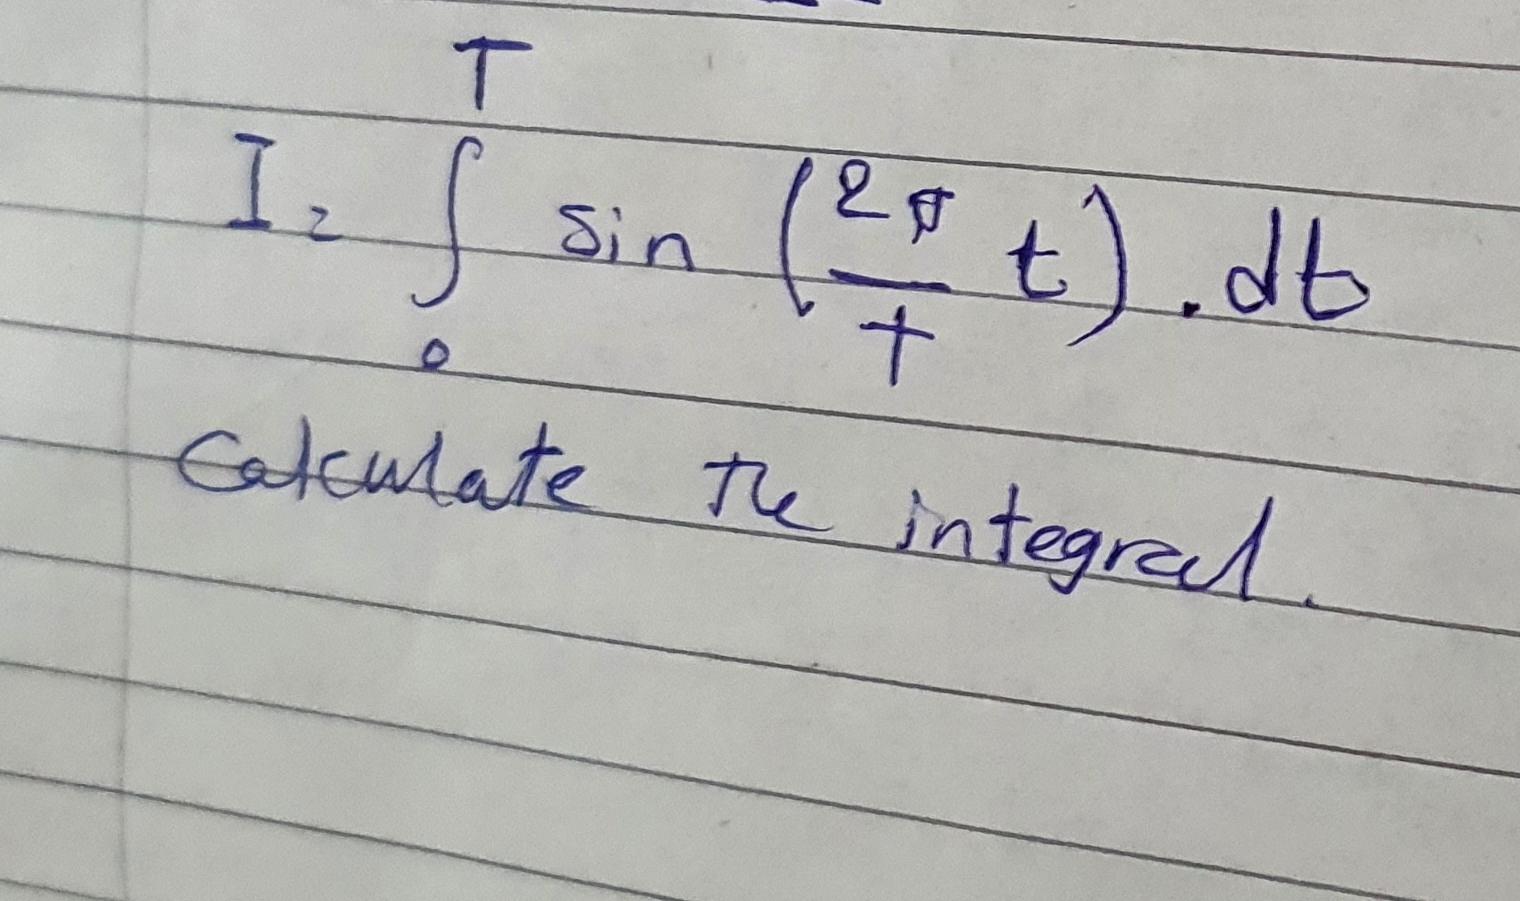 I = ∫₀ᵀ sin (2π/T t) . dt
Calculate the integral.